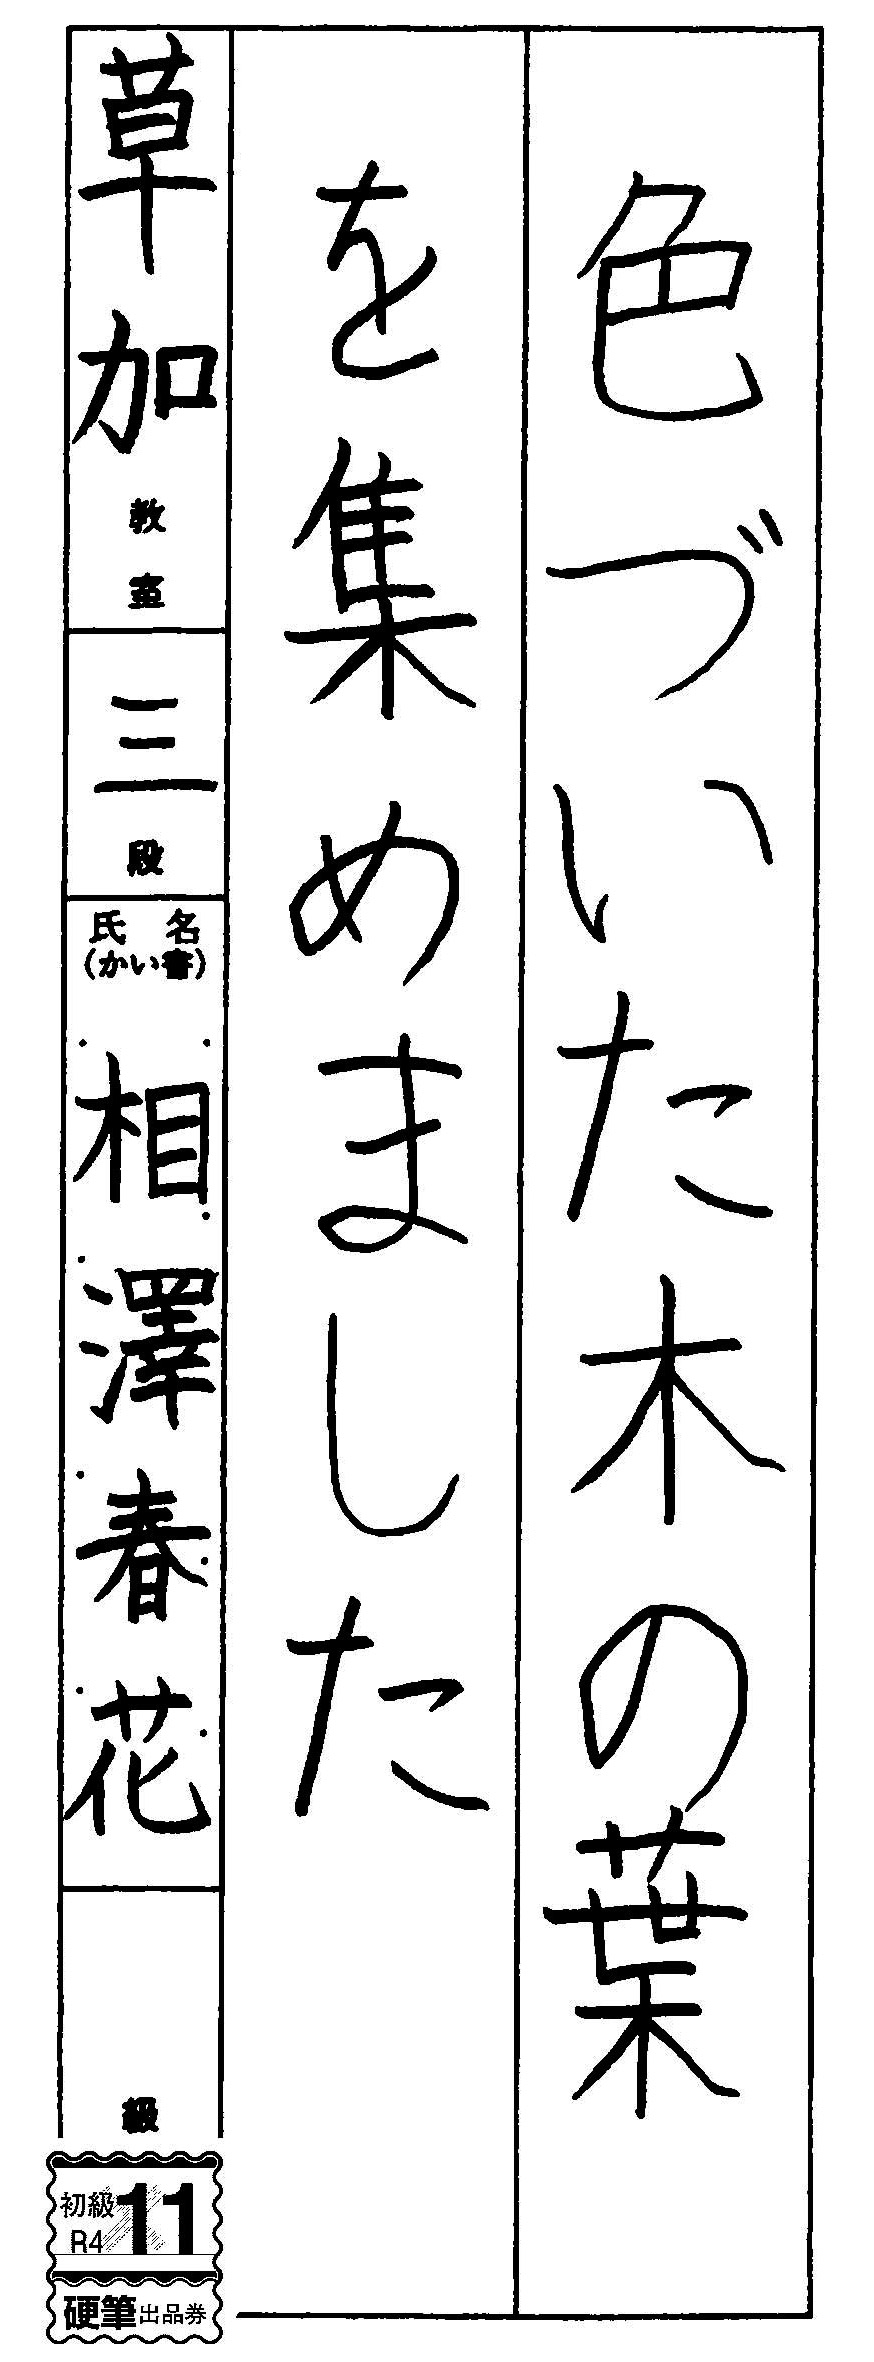 色づいた木の葉
を集めました
草加教室
三段
氏名
（かい書）
相澤春花
級
初級
R4
11
硬筆出品券